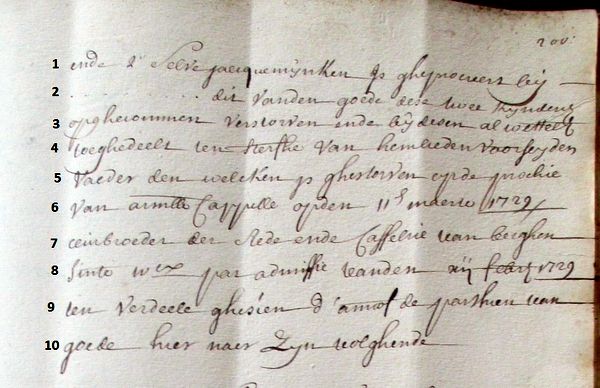 200
1 ende d' selve jacquemijnken js gheprouvert bij
2 . . . . . . . . . . dit vanden goede dese twee kijnderen
3 opghecommen verstorven ende bij desen al wettelt
4 toeghedeelt ten sterfhe van hemlieden voorseyden
5 vaeder den welcken js ghestorven op de prochie
6 van Cappelle opden 11en maerte 1729
7 der stede ende Casselrie van berghen
8 sinte wcx par admissie vanden xij feb 1729
9 ten verdeele ghesien d' de parthien van
10 goede hier naer zijn volghende